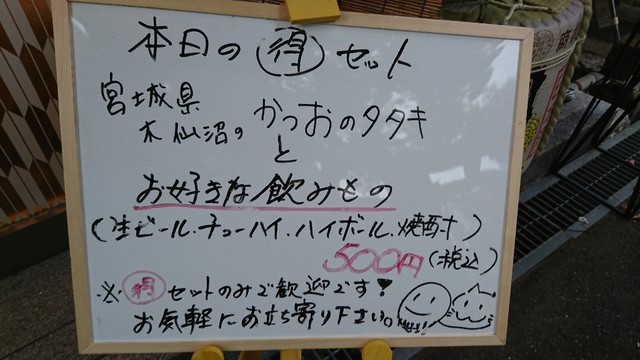 本日の 得 セット
宮城県
木仙沼の かつおのタタキ
と
お好きな飲みもの
(生ビール、チューハイ、ハイボール、焼酎ｵ)
500円(税込)
※ 得 セットのみで歓迎です!
お気軽にお立ち寄り下さい。